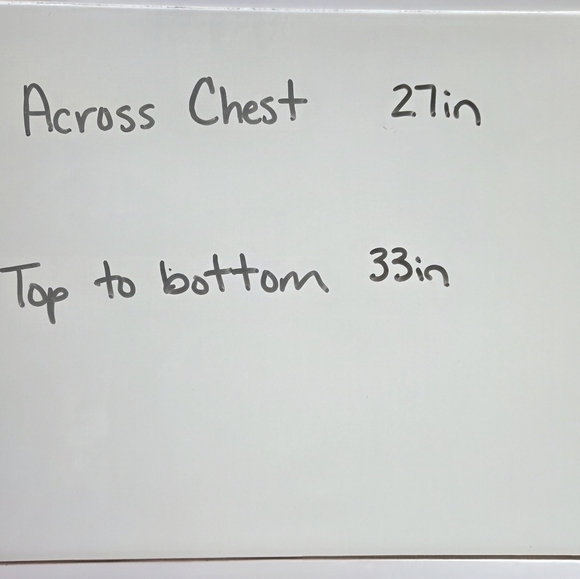 Across Chest 27in
Top to bottom 33in